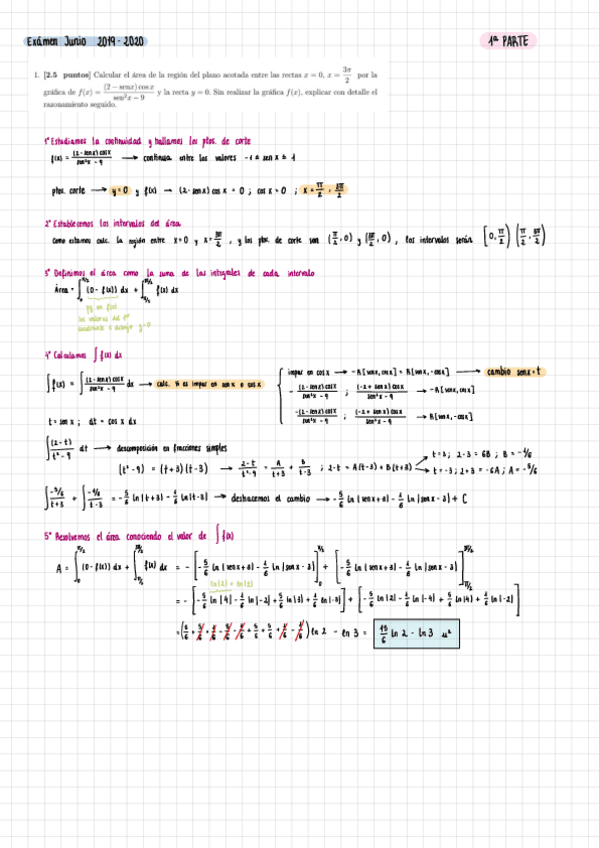 Exámen Junio 2019-2020
1ª PARTE
1. [2.5 puntos] Calcular el área de la región del plano acotada entre las rectas x = 0, x = 3π/2 por la
gráfica de f(x) = (2 − senx) cos x / sen²x − 9 y la recta y = 0. Sin realizar la gráfica f(x), explicar con detalle el
razonamiento seguido.
1º Estudiamos la continuidad y hallamos los ptos. de corte
f(x) = (2-senx) cosx / sen²x - 9 → continua entre los valores -1 ≤ sen x ≤ 1
ptos. corte → y=0 y f(x) → (2-senx) cos x = 0 ; cos x = 0 ; x = π/2 , 3π/2
2º Establecemos los intervalos del área
Como estamos calc. la región entre x=0 y x= 3π/2 , y los ptos. de corte son (π/2, 0) y (3π/2, 0) , los intervalos serán [0, π/2) (π/2, 3π/2)
3º Definimos el área como la suma de las integrales de cada intervalo
Área = ∫ (0 - f(x)) dx + ∫ f(x) dx
los valores del 1º
cuadrante x debajo y=0
4º Calculamos ∫ f(x) dx
∫ f(x) = ∫ (2-senx) cosx / sen²x - 9 dx → calc. si es impar en sen x o cos x
impar en cos x → -R[senx, cosx] = R[senx, -cosx] → cambio senx = t
- (2-senx) cosx / sen²x - 9 ; (-2+senx) cosx / sen²x - 9 → -R[senx, cosx]
-(2-senx) cosx / sen²x - 9 ; (-2+senx) cosx / sen²x - 9 → R[senx, -cosx]
t = sen x ; dt = cos x dx
∫ (2-t) / t² - 9 dt → descomposición en fracciones simples
(t² - 9) = (t+3)(t-3) → 2-t / t²-9 = A / t+3 + B / t-3 ; 2-t = A(t-3) + B(t+3) t=3 ; 2-3 = 6B ; B = -1/6
t=-3 ; 2+3 = -6A ; A = -5/6
∫ -5/6 / t+3 + ∫ -1/6 / t-3 = -5/6 ln|t+3| - 1/6 ln|t-3| → deshacemos el cambio → -5/6 ln|senx+3| - 1/6 ln|senx-3| + C
5º Resolvemos el área conociendo el valor de ∫ f(x)
A = ∫ (0 - f(x)) dx + ∫ f(x) dx = - [ -5/6 ln|senx+3| - 1/6 ln|senx-3| ] + [ -5/6 ln|senx+3| - 1/6 ln|senx-3| ]
ln|2| = ln|2|
= - [ -5/6 ln|4| - 1/6 ln|-2| + 5/6 ln|3| + 1/6 ln|-3| ] + [ -5/6 ln|2| - 1/6 ln|-4| + 5/6 ln|4| + 1/6 ln|-2| ]
ln 2 - ln 3 = 15/6 ln 2 - ln 3 u²